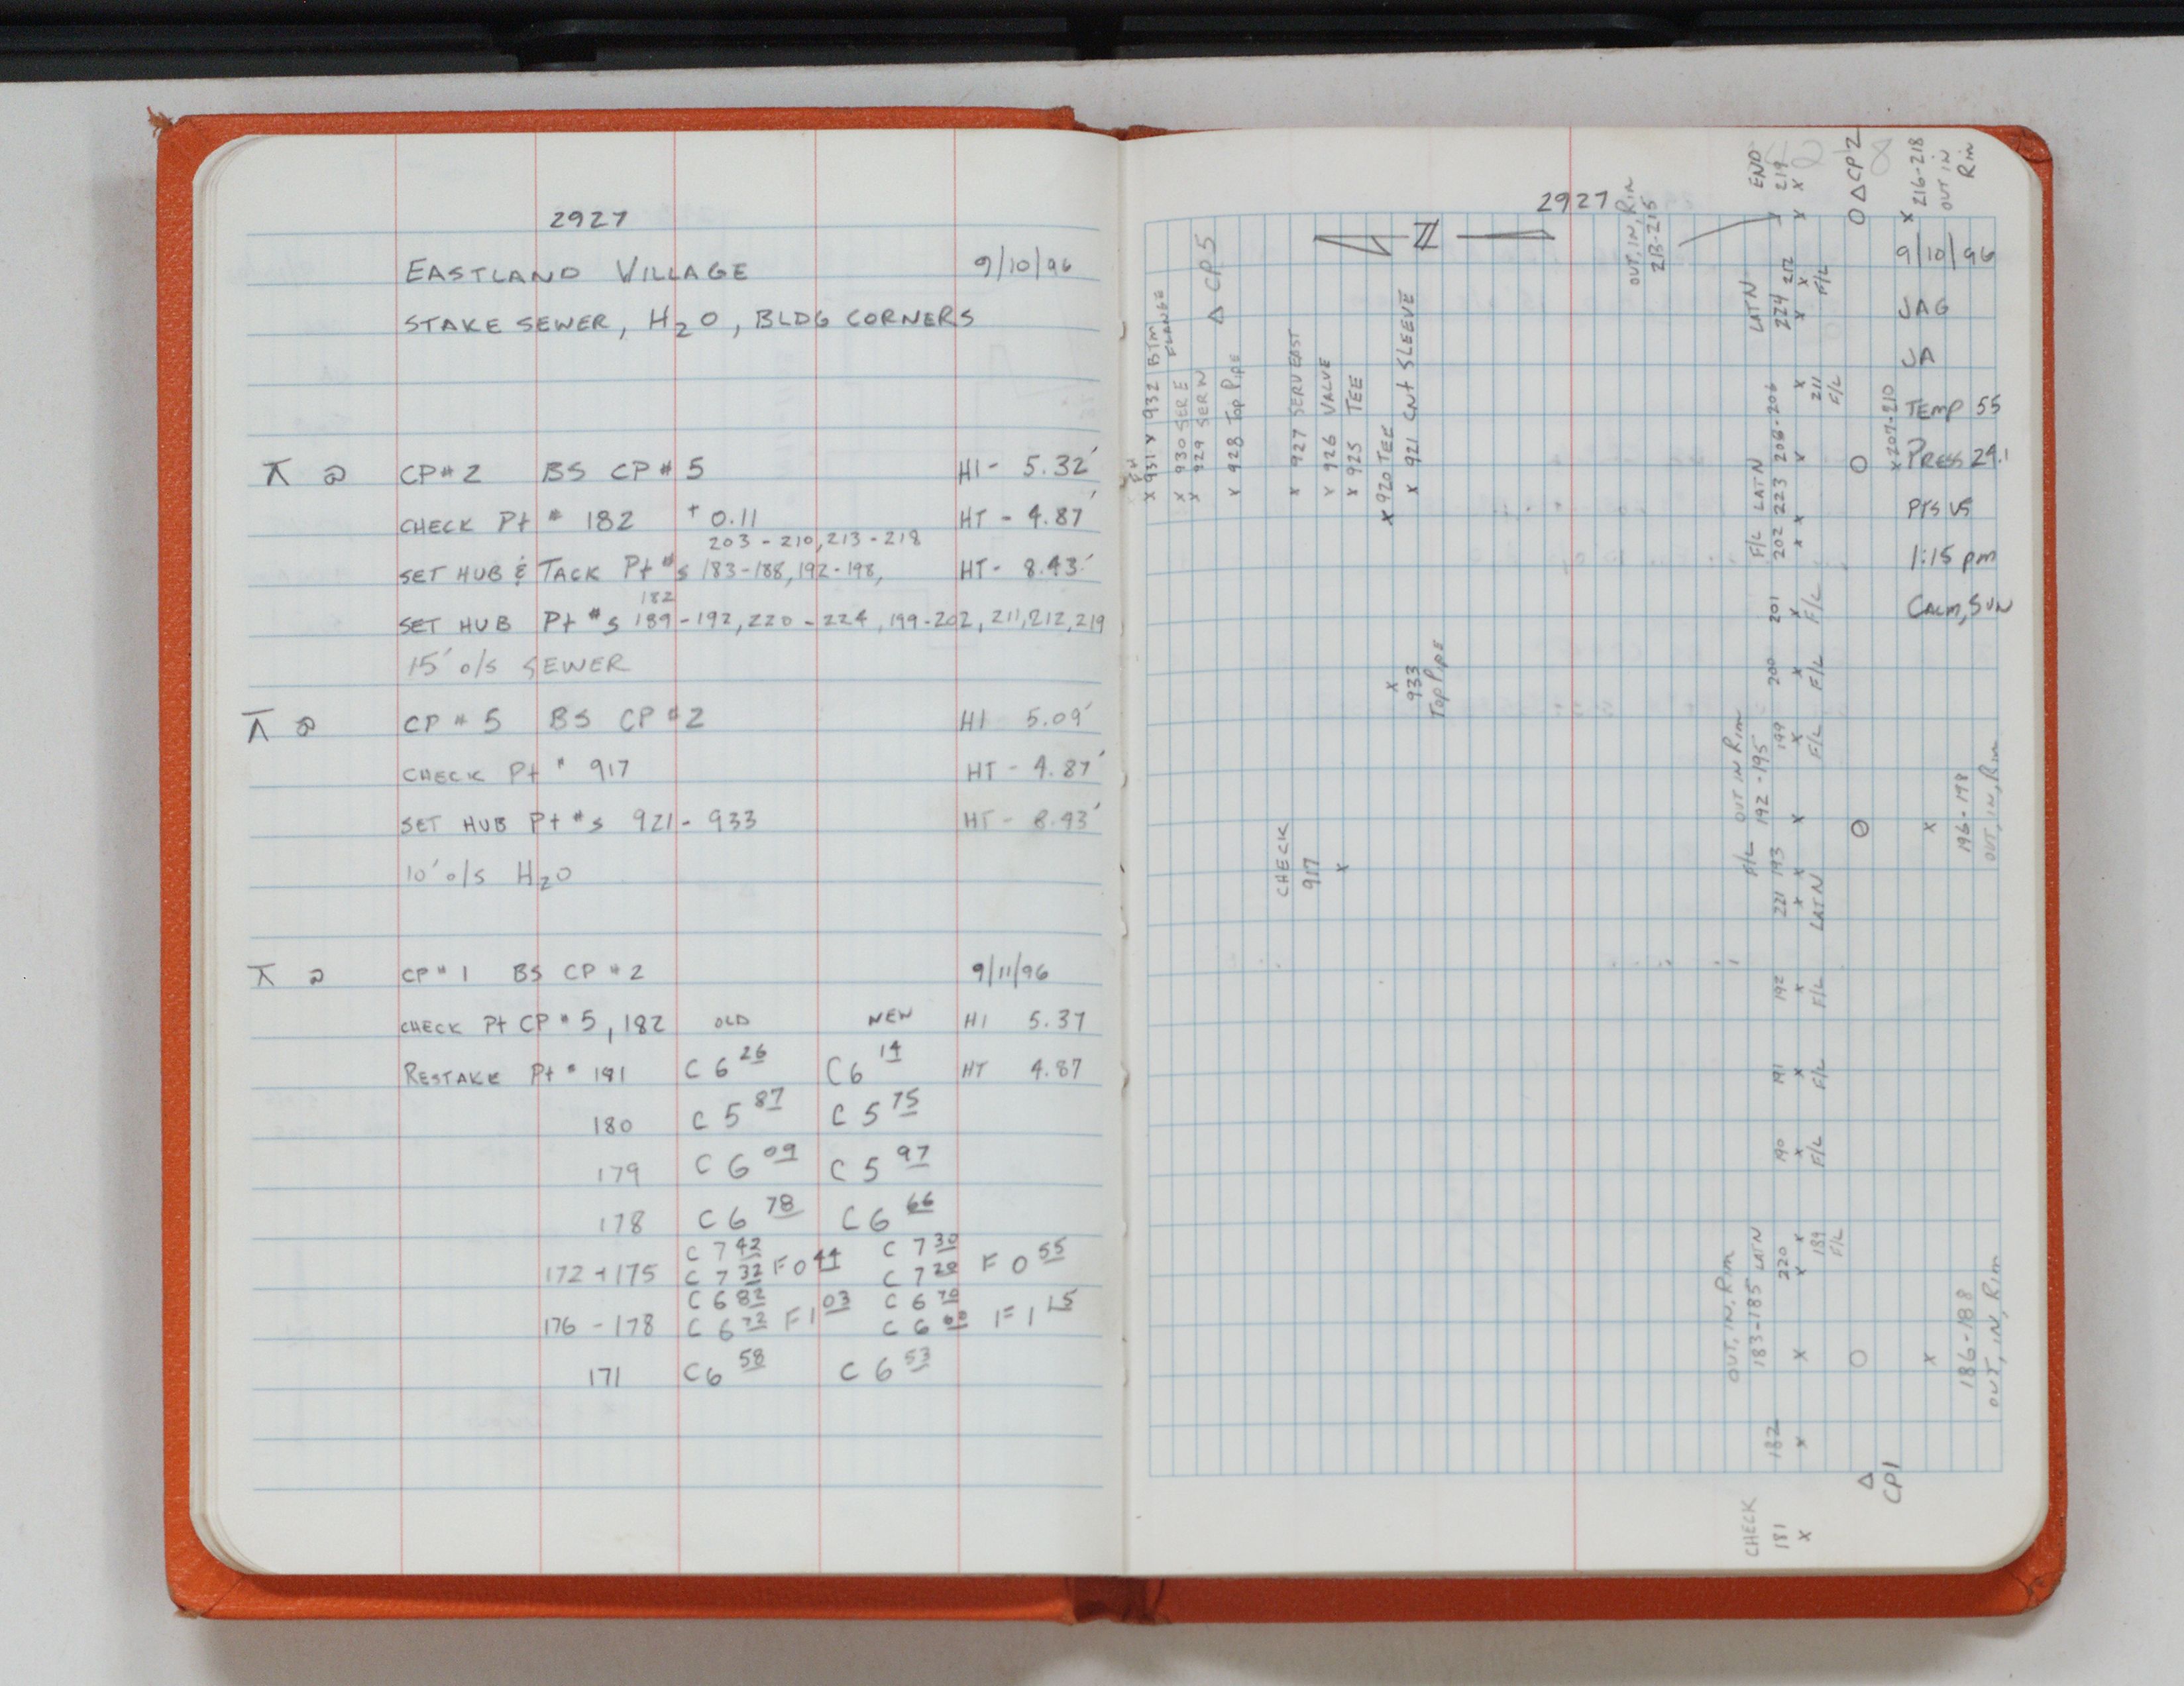 2927
EASTLAND VILLAGE 9/10/96
STAKE SEWER, H2O, BLDG CORNERS
⊼ @ CP#2 BS CP#5 HI - 5.32'
CHECK Pt # 182 +0.11 HT - 4.87'
203-210, 213-218
SET HUB & TACK Pt #s 183-188, 192-198, HT - 8.43'
182
SET HUB Pt #s 189-192, 220-224, 199-202, 211, 212, 219
15' o/s SEWER
⊼ @ CP #5 BS CP #2 HI 5.09'
CHECK Pt # 917 HT - 4.87'
SET HUB Pt #s 921-933 HT - 8.43'
10' o/s H2O
⊼ @ CP #1 BS CP #2 9/11/96
CHECK Pt CP #5, 182 OLD NEW HI 5.37
RESTAKE Pt # 181 C 6 26 C 6 14 HT 4.87
180 C 5 87 C 5 75
179 C 6 09 C 5 97
178 C 6 78 C 6 66
C 7 42 C 7 30
172 + 175 C 7 32 F 0 44 C 7 20 F 0 55
C 6 82 C 6 70
176 - 178 C 6 72 F 1 03 C 6 F 1 15
171 C 6 58 C 6 53
2927
9/10/96
JAG
JA
TEMP 55
PRESS 29.1
PTS VS
1:15 pm
CALM, SUN
N
Δ CP 5
x 931 x 932 BTM FLANGE
x 930 SER E
x 929 SER W
x 928 Top Pipe
x 927 SERV EAST
x 926 VALVE
x 925 TEE
x 920 TEE
x 921 CNT SLEEVE
x 933 Top Pipe
CHECK
917
x
OUT, IN, Rim
213-215
END
219
x
Δ CP 2
x 216-218
OUT IN
Rim
LATN
224
x
212
x
F/L
x
211
F/L
206-206
x
x 207-210
LATN
223
x
F/L
202
x
201
x
F/L
200
x
F/L
199
x
F/L
OUT IN Rim
192-195
x
x
196-198
OUT, IN, Rim
F/L
193
x
221
x
LATN
192
x
F/L
191
x
F/L
190
x
F/L
x
189
F/L
LATN
220
x
OUT, IN, Rim
183-185
x
x
186-188
OUT, IN, Rim
182
x
Δ
CP1
CHECK
181
x